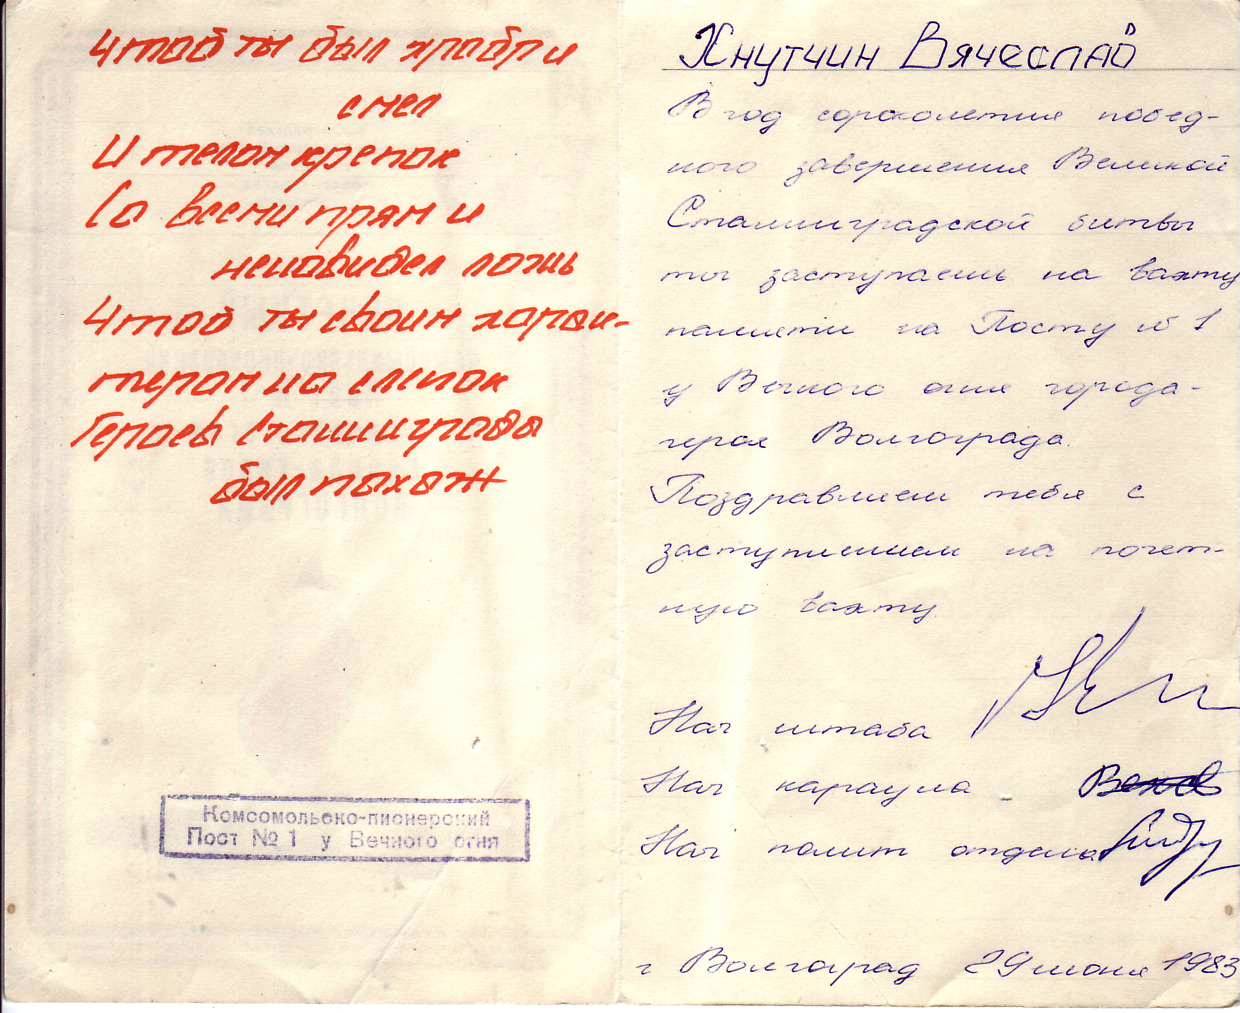 Чтоб ты был храбр и
смел
И телом крепок
Со всеми прям и
ненавидел ложь
Чтоб ты своим харак-
тером на слепок
Героев Сталинграда
был похож
Комсомольско-пионерский
Пост №1 у Вечного огня
Хнутчин Вячеслав
В год сорокалетия побед-
ного завершения Великой
Сталинградской битвы
ты заступаешь на вахту
памяти на Посту №1
у Вечного огня города-
героя Волгограда.
Поздравляем тебя с
заступлением на почет-
ную вахту
Нач штаба
Нач караула
Нач полит отдела
г Волгоград 29 июня 1983